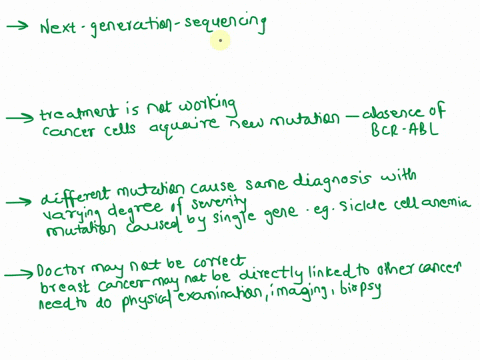 → Next-generation-sequencing
→ treatment is not working
cancer cells aquaire new mutation — absence of
BCR-ABL
→ different mutation cause same diagnosis with
varying degree of severity
mutation caused by single gene. eg. Sickle cell anemia
→ Doctor may not be correct
breast cancer may not be directly linked to other cancer
need to do physical examination, imaging, biopsy